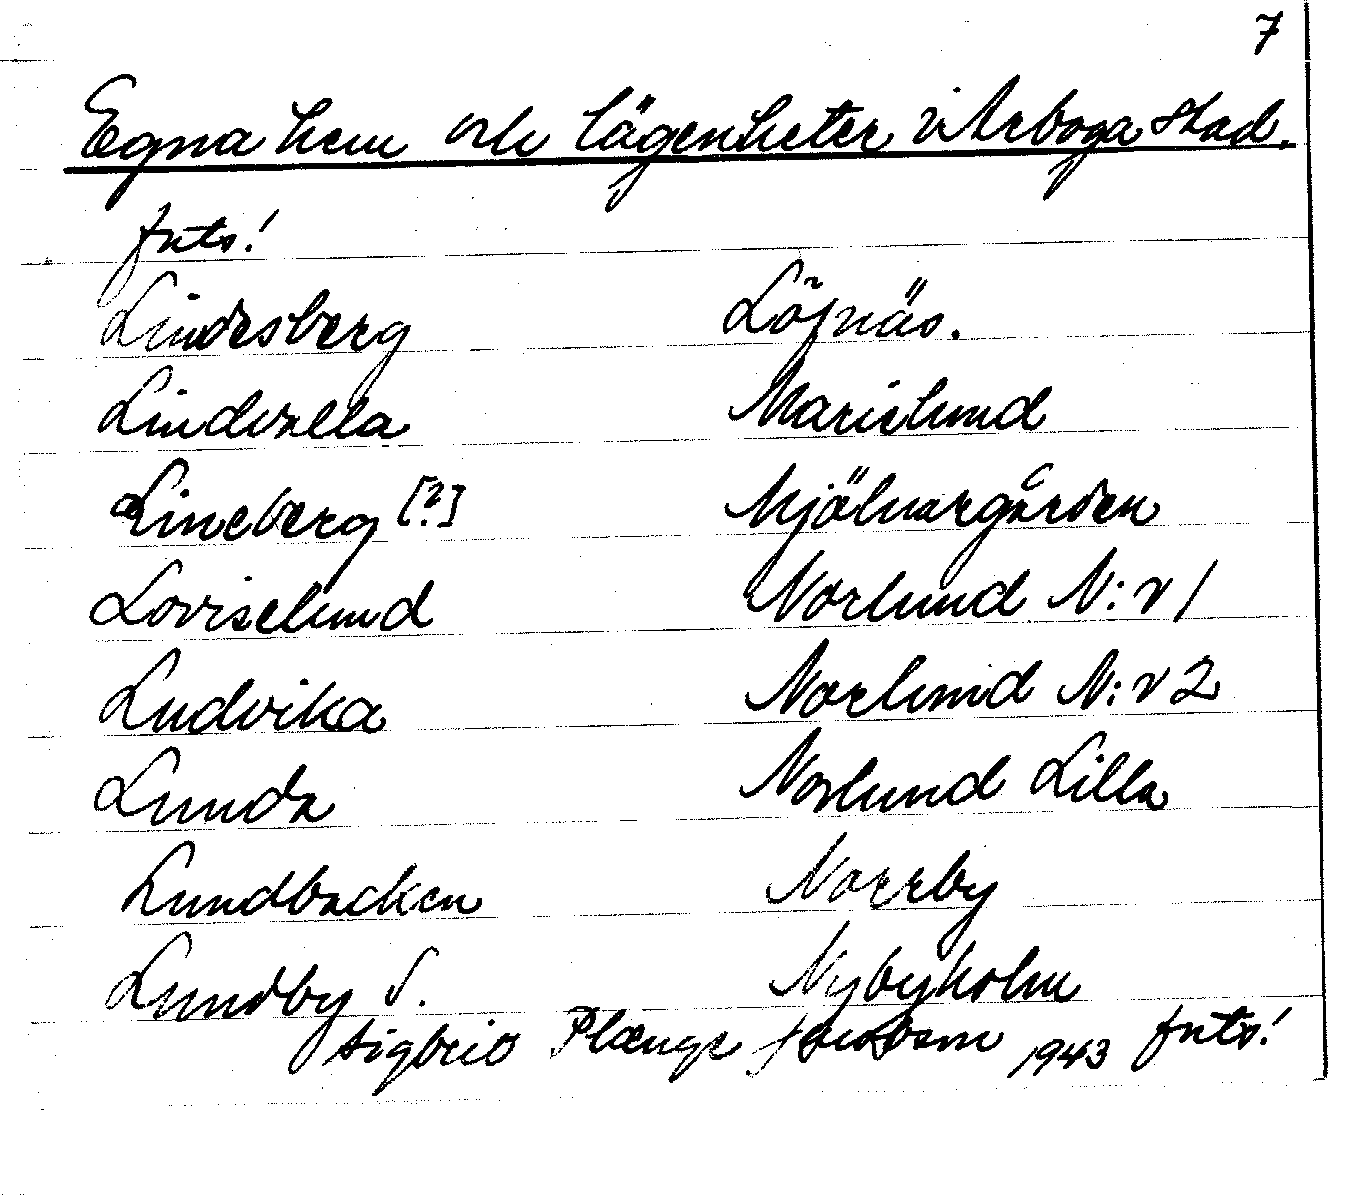 7
Egna hem och lägenheter i Arboga stad.
forts!
Lindesberg
Lindvalla
Lineberg [?]
Loviselund
Ludvika
Lunda
Lundbacken
Lundby S.
Löfnäs.
Marielund
Mjölnargården
Norlund N:r 1
Norlund N:r 2
Norlund Lilla
Norrby
Nybyholm
Sigbrit Plænge Jacobson 1943 forts!